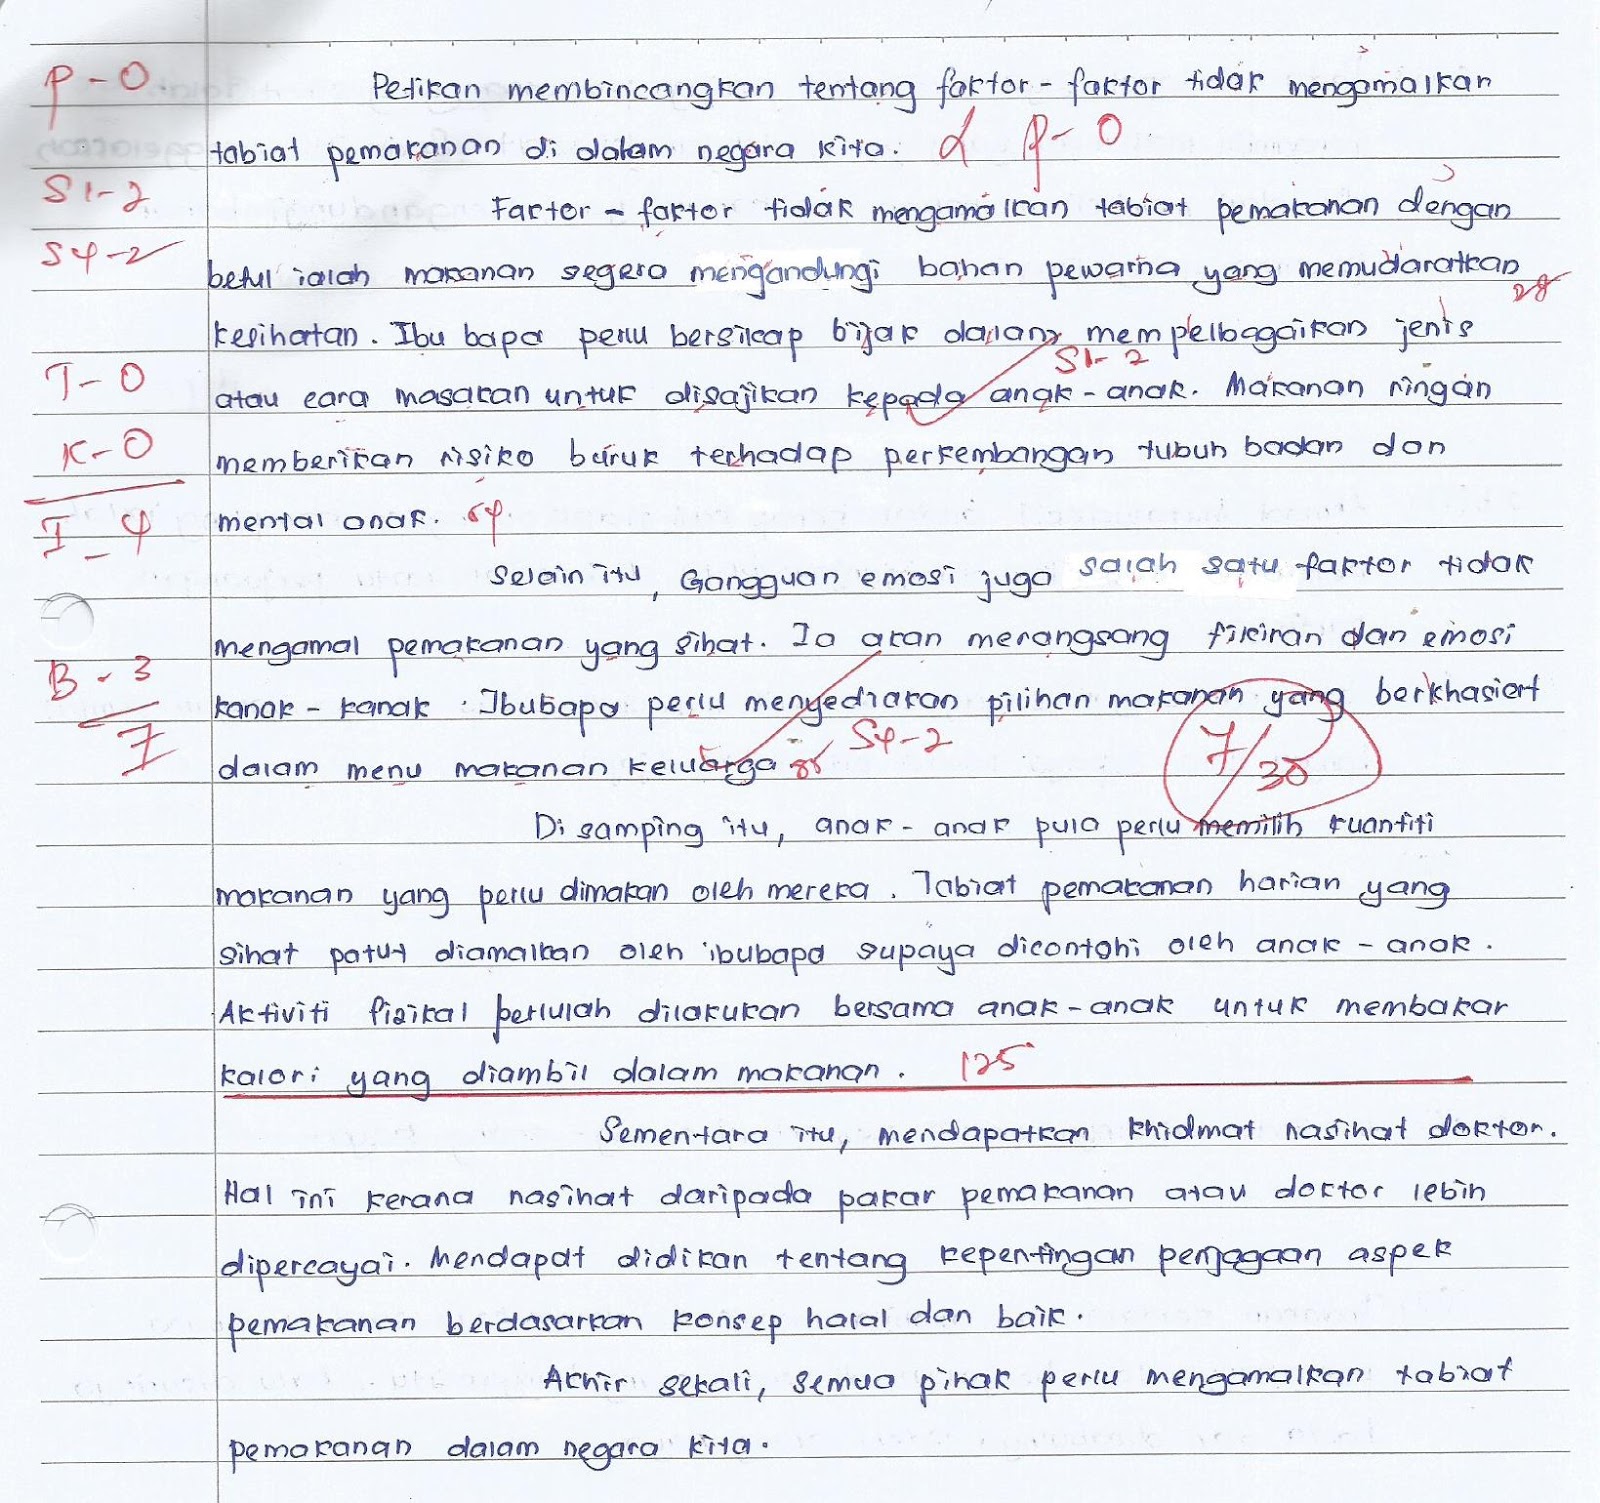 P - 0
Petikan membincangkan tentang faktor - faktor tidak mengamalkan
tabiat pemakanan di dalam negara kita. α P - 0
S1 - 2
Factor - faktor tidak mengamalkan tabiat pemakanan dengan
S4 - 2
betul ialah makanan segera mengandungi bahan pewarna yang memudaratkan
28
kesihatan. Ibu bapa perlu bersikap bijak dalam mempelbagaikan jenis
S1 - 2
T - 0
atau cara masakan untuk disajikan kepada anak - anak. Makanan ringan
K - 0
memberikan risiko buruk terhadap perkembangan tubuh badan dan
I - 4
mental anak. 54
Selain itu, Gangguan emosi juga salah satu faktor tidak
mengamal pemakanan yang sihat. Ia akan merangsang fikiran dan emosi
B - 3
kanak - kanak. Ibubapa perlu menyediakan pilihan makanan yang berkhasiat
7
S4 - 2
7/30
dalam menu makanan keluarga 85
Di samping itu, anak - anak pula perlu memilih kuantiti
makanan yang perlu dimakan oleh mereka. Tabiat pemakanan harian yang
sihat patut diamalkan oleh ibubapa supaya dicontohi oleh anak - anak.
Aktiviti fizikal perlulah dilakukan bersama anak-anak untuk membakar
kalori yang diambil dalam makanan. 125
Sementara itu, mendapatkan khidmat nasihat doktor.
Hal ini kerana nasihat daripada pakar pemakanan atau doktor lebih
dipercayai. Mendapat didikan tentang kepentingan penjagaan aspek
pemakanan berdasarkan konsep halal dan baik.
Akhir sekali, semua pihak perlu mengamalkan tabiat
pemakanan dalam negara kita.